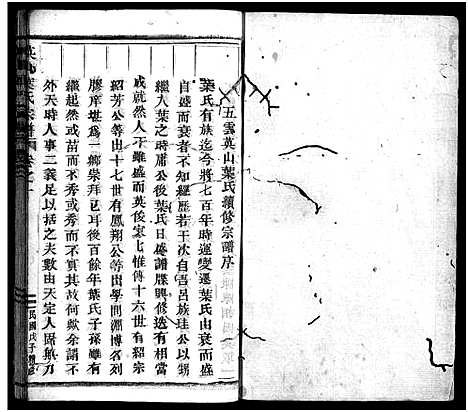 五雲英山葉氏續修宗譜序
葉氏有族迄今將七百年時運變遷葉氏由衰而盛
自盛而衰者不知經歷若干次自呂尾族珪公以甥
繼入葉之時庸公後葉氏日盛譜牒興修造有相當
成就然人丁雖盛而英俊家七惟傳十六世有紹宗
紹芳公等出十七世有鳳翔公等出學問淵博名列
膠庠堪為一鄉崇拜已耳後百餘年葉氏子孫雖有
繼起然或苗而不秀或秀而不實其故何歟余綜其
外天時人事二義足以括之夫數由天定人固無力
英山葉氏宗譜 卷之一
民國戊子續修